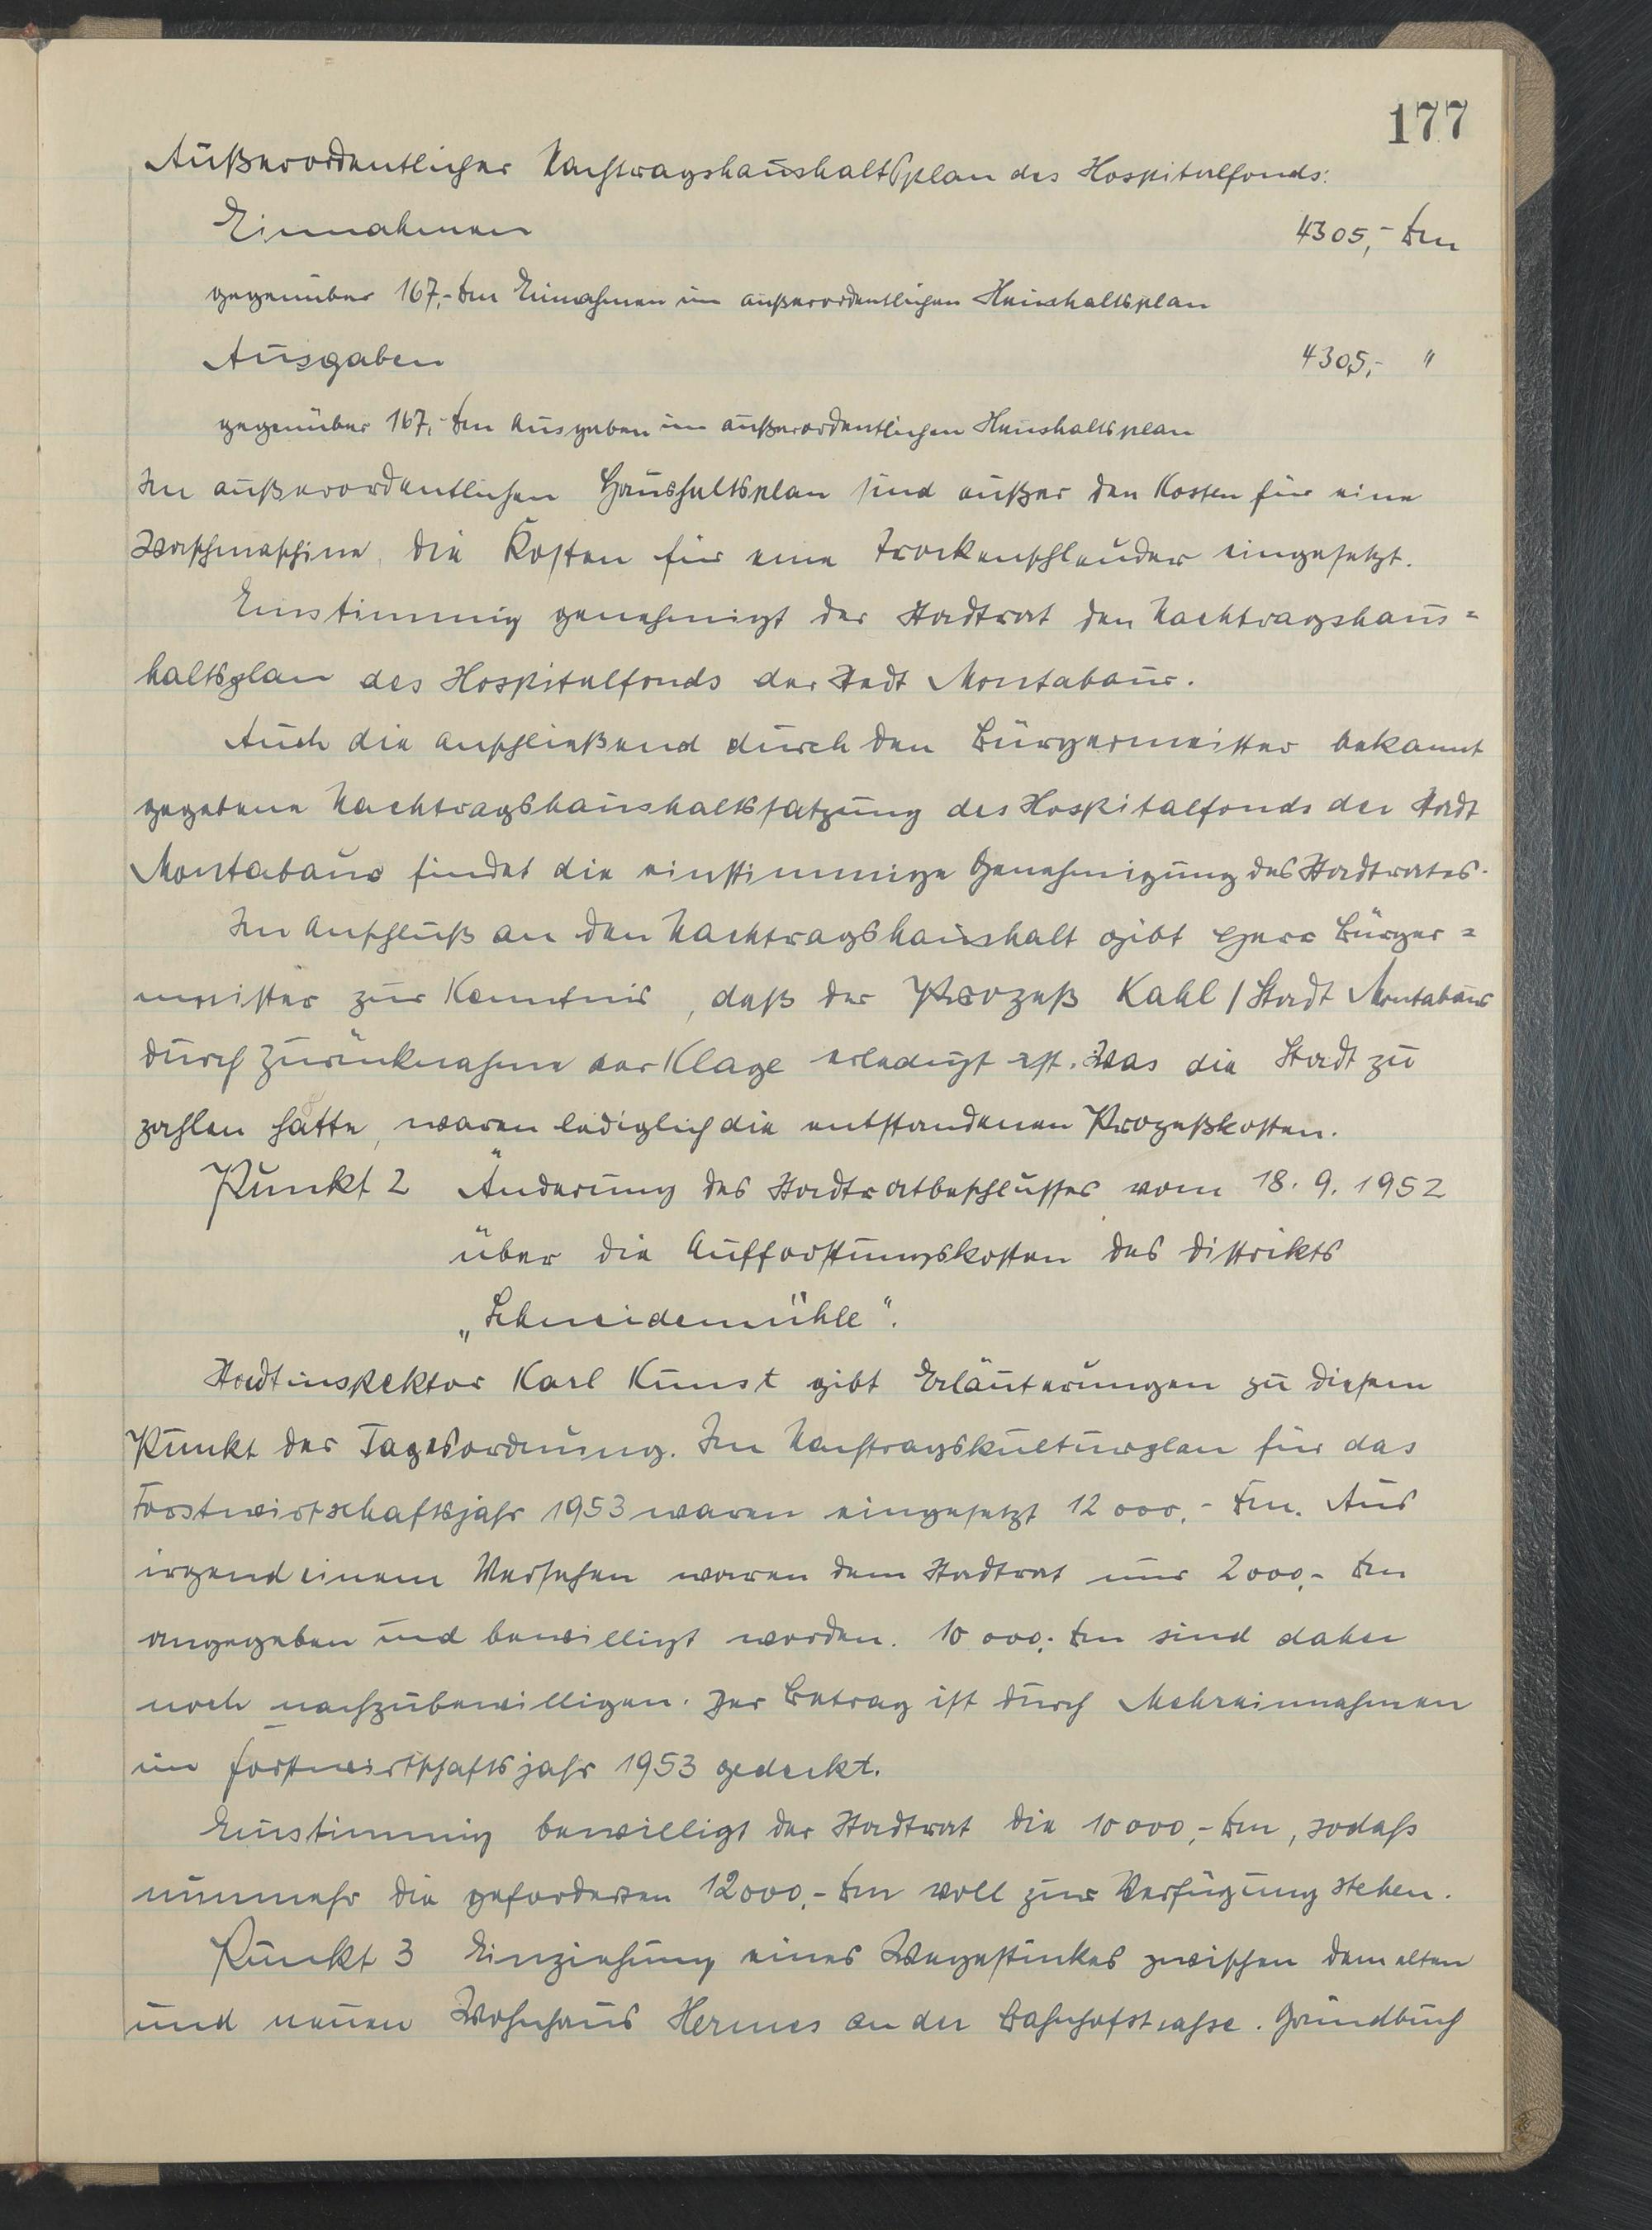 177
Außerordentlicher Nachtragshaushaltsplan des Hospitalfonds:
Einnahmen 4305,- Dm
gegenüber 167,- Dm Einnahmen im außerordentlichen Haushaltsplan
Ausgaben 4305,- "
gegenüber 167,- Dm Ausgaben im außerordentlichen Haushaltsplan
Im außerordentlichen Haushaltsplan sind außer den Kosten für eine
Waschmaschine, die Kosten für eine Trockenschleuder eingesetzt.
Einstimmig genehmigt der Stadtrat den Nachtragshaus=
haltsplan des Hospitalfonds der Stadt Montabaur.
Auch die anschließend durch den Bürgermeister bekannt
gegebene Nachtragshaushaltssatzung des Hospitalfonds der Stadt
Montabaur findet die einstimmige Genehmigung des Stadtrates.
Im Anschluß an den Nachtragshaushalt gibt Herr Bürger=
meister zur Kenntnis, daß der Prozeß Kahl / Stadt Montabaur
durch Zurücknahme der Klage erledigt ist. Was die Stadt zu
zahlen hatte, waren lediglich die entstandenen Prozeßkosten.
Punkt 2 Änderung des Stadtratbeschlusses vom 18. 9. 1952
über die Aufforstungskosten des Distrikts
„Schneidemühle".
Stadtinspektor Karl Kunst gibt Erläuterungen zu diesem
Punkt der Tagesordnung. Im Nachtragskulturplan für das
Forstwirtschaftsjahr 1953 waren eingesetzt 12 000,- Dm. Aus
irgend einem Versehen waren dem Stadtrat nur 2000,- Dm
angegeben und bewilligt worden. 10 000,- Dm sind daher
noch nachzubewilligen. Der Betrag ist durch Mehreinnahmen
im Forstwirtschaftsjahr 1953 gedeckt.
Einstimmig bewilligt der Stadtrat die 10 000,- Dm, sodass
nunmehr die geforderten 12000,- Dm voll zur Verfügung stehen.
Punkt 3 Einziehung eines Wegestückes zwischen dem alten
und neuen Wohnhaus Hermes an der Bahnhofstrasse. Grundbuch